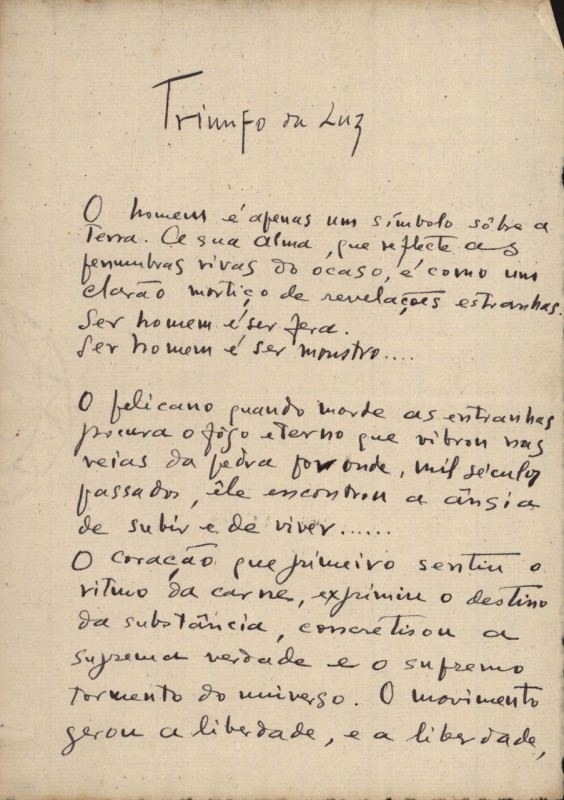 Triunfo da Luz
O homem é apenas um símbolo sôbre a
Terra. E sua alma, que reflecte as
penumbras vivas do ocaso, é como um
clarão mortiço de revelações estranhas.
Ser homem é ser fera.
Ser homem é ser monstro....
O pelicano quando morde as entranhas
procura o fôgo eterno que vibrou nas
veias da pedra por onde, mil séculos
passados, êle encontrou a ânsia
de subir e de viver......
O coração que primeiro sentiu o
ritmo da carne, exprimiu o destino
da substância, concretisou a
suprema verdade e o supremo
tormento do universo. O movimento
gerou a liberdade, e a liberdade,